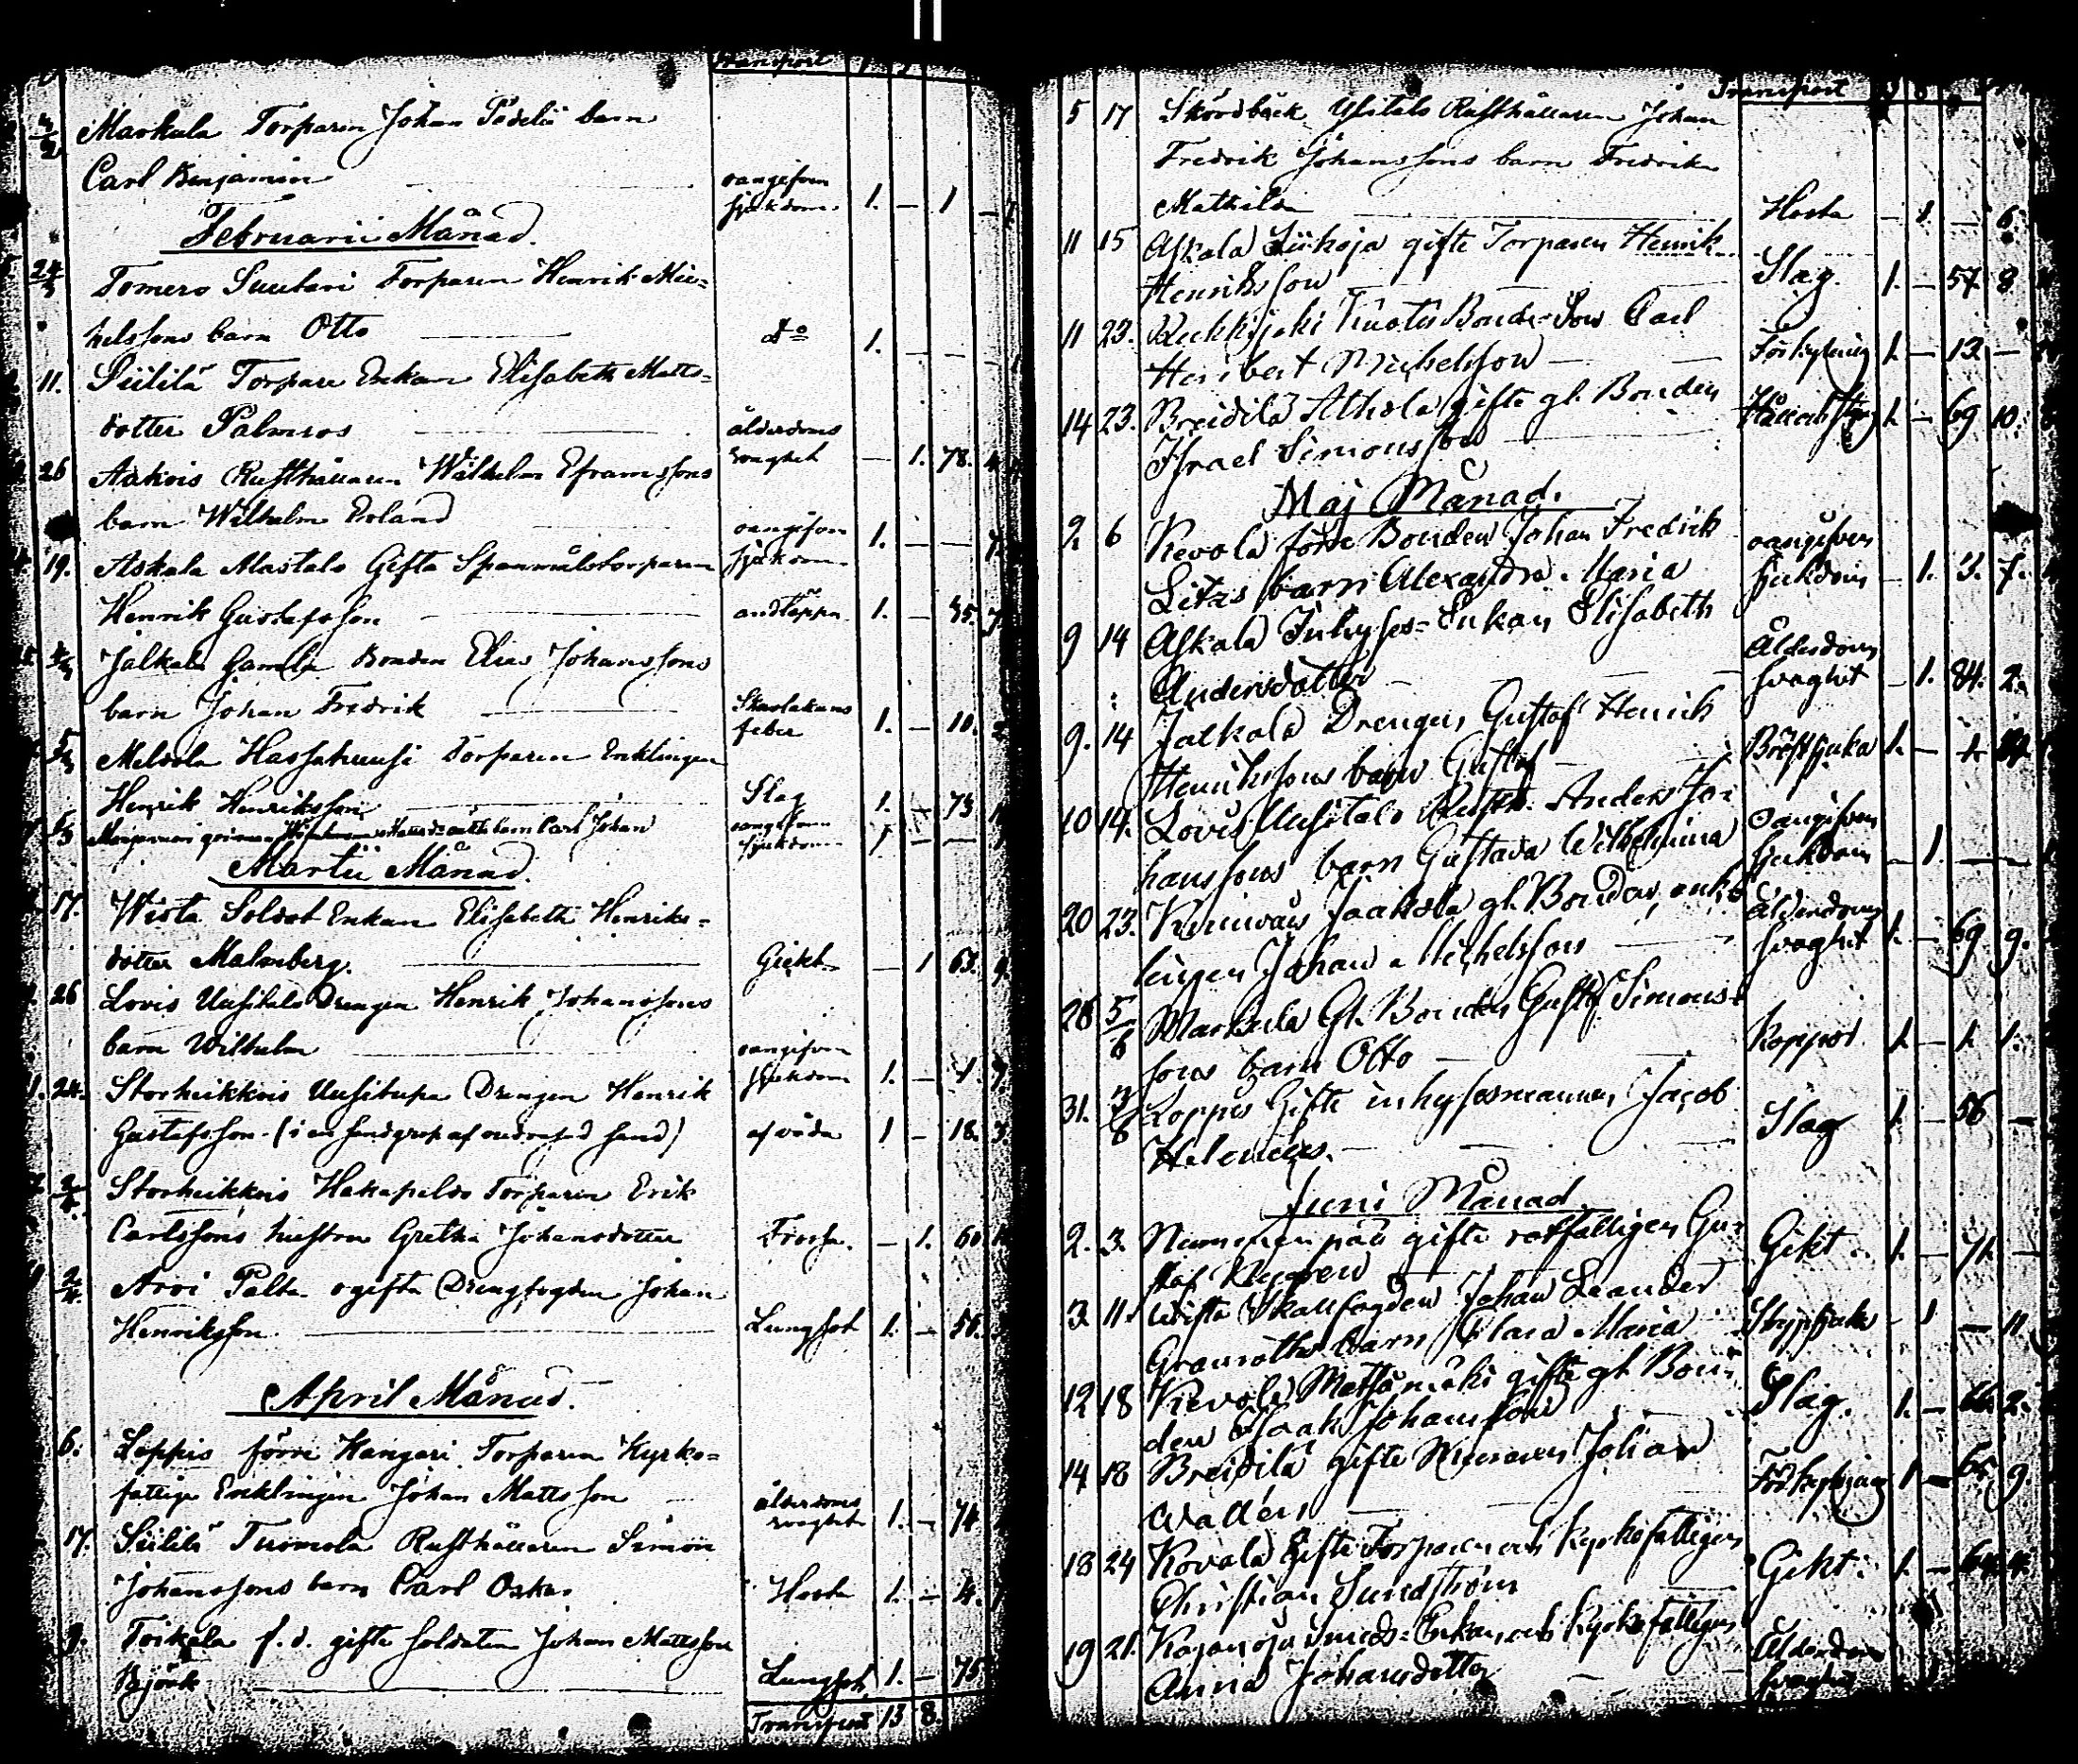 Transport
3/2 Markula Torparen Johan Pädelä barn
Carl Benjamin oangifven
sjukdom. 1. — 1 —
Februarii Månad.
24 Tomero Suutari Torparen Henrik Mic=
helssons barn Otto do 1. — —
11. Siililä Torpare Enkan Elisabeth Matts=
dotter Palmros ålderdoms
svaghet — 1. 78.
26 Aakois Rusthållaren Wilhelm Eframssons
barn Wilhelm Erland oangifven
19. Askala Mastalo Gifta Spanmålstorparen sjukdom. 1. — —
Henrik Gustafsson andtäppa. 1. — 45.
Jalkala Gamla Bonden Elias Johanssons
barn Johan Fredrik Skarlakans
feber 1. — 10.
5/3 Meldola Hassahuusi Torparen Enklingen
Henrik Henriksson Slag 1. — 73
5/3 barn Carl Johan oangifven
sjukdom 1 — —
Martii Månad.
17. Wista Soldat Enkan Elisabeth Henriks=
dotter Malmberg. Gickt — 1 63. 9.
26 Lovis Uusitalo Drengen Henrik Johanssons
barn Wilhelm oangifven
sjukdom 1. — 1.
24. Storheikkois Uusitupa Drengen Henrik
Gustafsson (i en sandgrop af nedrasad sand) af våda 1 — 18. 3.
2/4. Storheikkois Hakapeldo Torparen Erik
Carlssons hustru Gretha Johansdotter Frossa. — 1. 60
2/4. Arvi Palta ogifta Drengfogden Johan
Henriksson. Lungsot 1. — 56.
April Månad.
6. Loppis förre Kangari Torparen Kyrko=
fattige Enklingen Johan Mattsson ålderdoms
svaghet 1. — 74.
17. Siililä Tuomola Rusthållaren Simon
Johanssons barn Carl Oskar Hosta 1. — 4.
9. Toikala f. d. gifte soldaten Johan Mattsson
Björk Lungsot 1. — 75
Transport 13 8.
Transport
5 17 Skördbäck Ylitalo Rusthållaren Johan
Fredrik Johanssons barn Fredrika
Mathilda Hosta — 1. — 6.
11 15 Askala Liikoja gifte Torparen Henrik
Henriksson Slag. 1. — 57 8
11 23. Bonde Son Carl
Heribert Michelsson Förkylning 1. — 13. —
14 23. Breidilä Alhola gifte gl. Bonden
Israel Simonsson 1. — 69 10.
Maj Månad.
2. 6 Kevola förre Bonden Johan Fredrik oangifven
Litas barn Alexandra Maria sjukdom — 1. 3. 7.
9 14 Askala Inhyses=Enkan Elisabeth
Andersdotter Ålderdoms
svaghet — 1. 84. 2.
9. 14 Jalkala Drengen Gustaf Henrik
Henrikssons barn Gustaf Bröstsjuka 1. —
10 14. Lovis Uusitalo Rusth. Anders Jo=
hanssons barn Gustava Wilhelmina oangifven
sjukdom — 1. — —
20 23. Koiuvais Jaakola gl. Bonden enk=
lingen Johan Michelsson Ålderdoms
svaghet 1. — 69 9.
28 5/6 Markula Gl. Bonden Gustaf Simons=
sons barn Otto Koppor 1. — 1. 1.
31. 3/6 Loppis Gifte inhysesmannen Jacob
Helenius. Slag 1. — 56 —
Juni Månad
2. 3. Nummenpää gifte rotfattigen Gu=
staf Nygren Gikt 1. — 71. —
3. 11. Wista Skallfogden Johan Leander
Granroths barn Clara Maria Strypsjuka — 1 — 11
12 18 Kevola Mattsmäki gifte gl Bon=
den Isaak Johansson Slag. 1. — 66. 2.
14 18 Breidilä gifte Johan
Wallen Förkylning 1. — 65 9.
18 24 Kovala Gifte Torparen och Kyrkofattigen
Christian Sundström Gikt 1. —
19 21. Kajanoja Smeds=Enkan och Kyrkofattigen
Anna Johansdotter Ålderdoms
svaghet